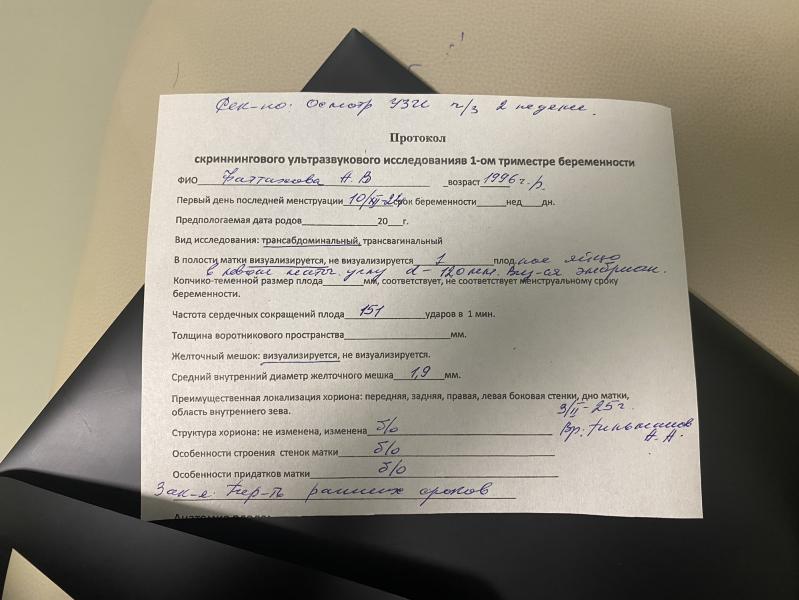 Рек-но: Осмотр УЗИ ч/з 2 недели.
Протокол
скриннингового ультразвукового исследованияв 1-ом триместре беременности
ФИО А. В возраст 1996 г.р.
Первый день последней менструации 10/XII-24 срок беременности нед дн.
Предпологаемая дата родов 20 г.
Вид исследования: трансабдоминальный, трансвагинальный
В полости матки визуализируется, не визуализируется 1 плодное яйцо
в левом маточ. углу d - 12,0 мм. Виз-ся эмбрион.
Копчико-теменной размер плода мм, соответствует, не соответствует менструальному сроку
беременности.
Частота сердечных сокращений плода 151 ударов в 1 мин.
Толщина воротникового пространства мм.
Желточный мешок: визуализируется, не визуализируется.
Средний внутренний диаметр желточного мешка 1,9 мм.
Преимущественная локализация хориона: передняя, задняя, правая, левая боковая стенки, дно матки,
область внутреннего зева.
3/II-25 г.
Структура хориона: не изменена, изменена б/о
Вр. А. А.
Особенности строения стенок матки б/о
Особенности придатков матки б/о
Зак-е: Бер-ть ранних сроков